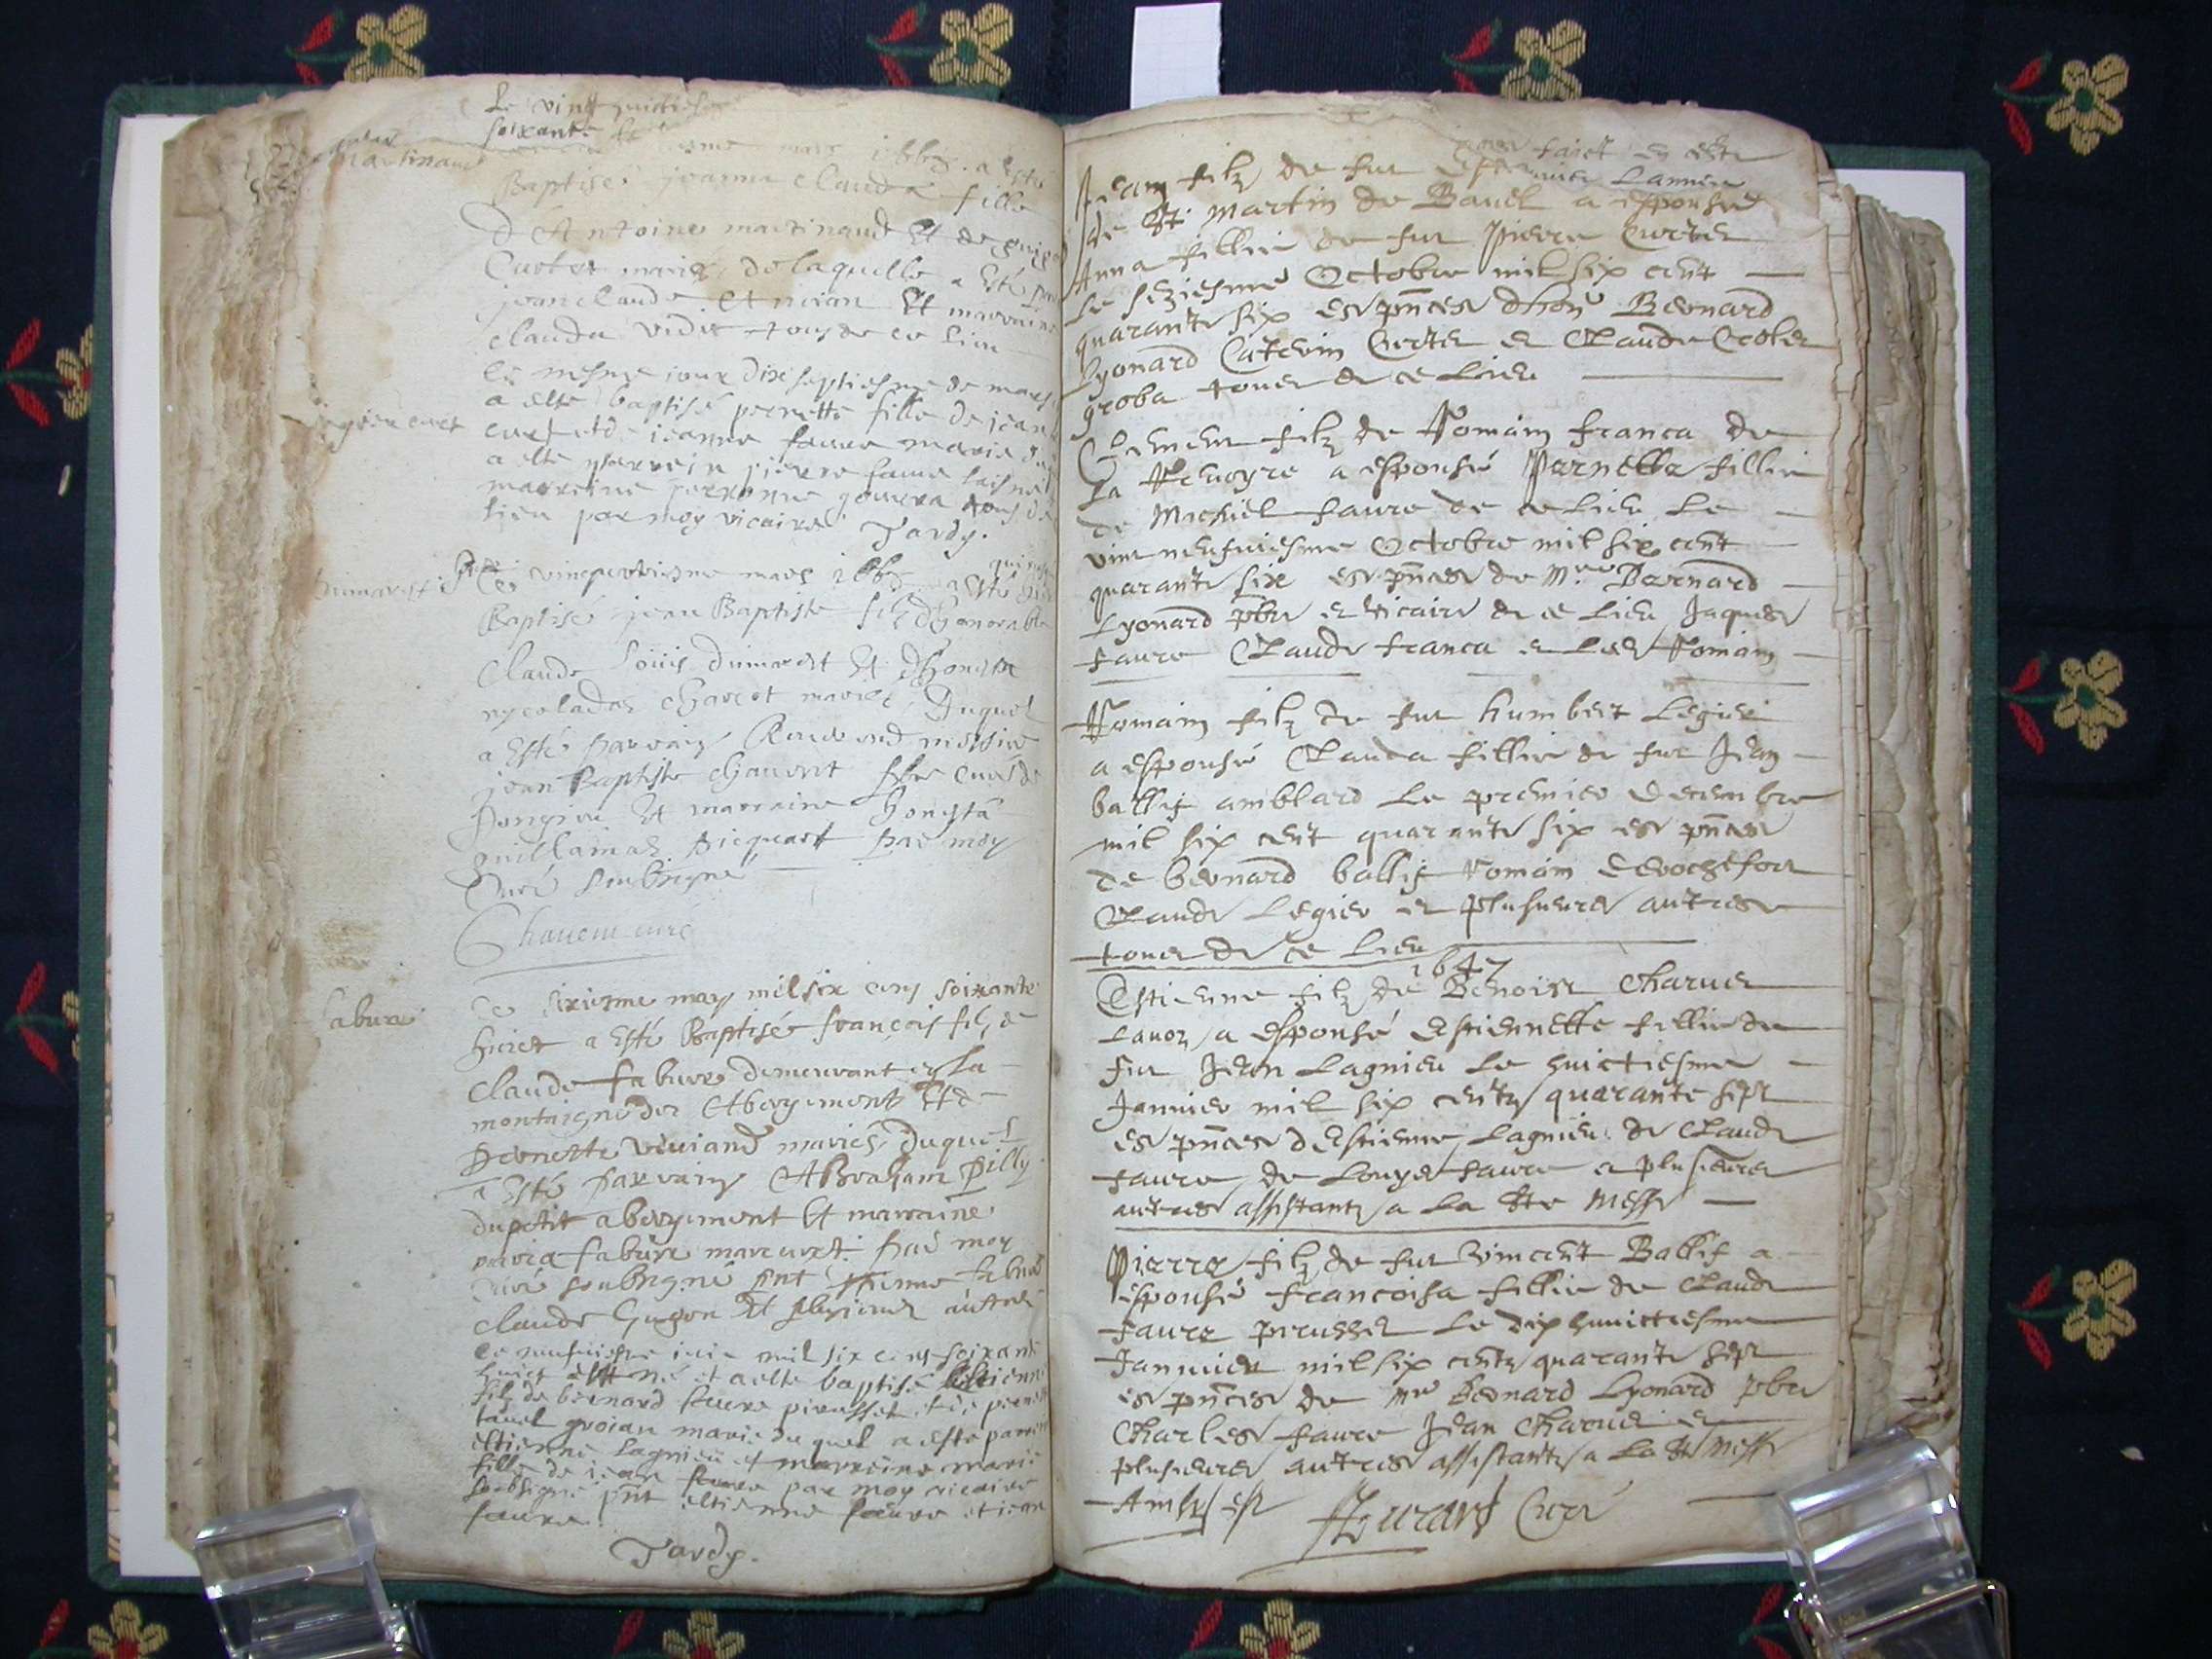 Le vingt huictiesme
soixante
Martinand
mars 1668 a esté
Baptisée joanna Clauda fille
D'Antoine martinand Et de
Curtet mariés, de laquelle a Esté
jean claude Et marraine
clauda vidit tous de ce lieu
le mesme jour dix septiesme de mars
a esté baptisé pernette fille de jean
curt et de jeanne faure mariés
a esté parrein pierre faure
marreine perronne gouvera tous de
lieu par moy vicaire Tardy.
Ce vingt mars a Esté
Baptisé jean Baptiste filz d'honorable
Claude Loüis dumarest Et d'honeste
nycolade charcot mariés, Duquel
a Esté parrain Reverend messire
jean Baptiste Chavent curé de
Et marraine honeste
guillaimaz Picquart par moy
Curé soubsigné
Chavent curé
fabure
Ce sixiesme may mil six cens soixante
huict a Esté Baptisé françois filz de
Claude fabure demeurant en la
montaigne des Abergement Et de
Pernette Viviand mariés, Duquel
a Esté parrain Abraham Pilly
du petit abergement Et marraine
maria fabure par moy
curé soubsigné pnt Estienne fabure
claude Gugon Et plusieurs autres
Ce neufviesme mil six cens soixante
huict est né et a esté baptisé estienne
filz de bernard faure perusset et de pernette
tavel groian mariés duquel a esté parrein
estienne lagnieu et marreine marie
fille de jean faure par moy vicaire
soubsigné pnt estienne faure et jean
faure.
Tardy.
Jean filz de feu
de St. Martin de Bavel a espousé
Anna fillie de feu Pierre Curtet
Le seziesme Octobre mil six cent
quarante six es pnces d'hon. Bernard
Lyonard Caterin Curtet et Claude Crotet
groba tous de ce Lieu
Clement filz de Romain franca de
La Revoyre a espousé Pernette fillie
de Michiel faure de ce Lieu Le
vint neufviesme Octobre mil six cent
quarante six es pnces de Mre Bernard
Lyonard pbre et vicaire de ce Lieu Jaques
faure Claude franca et Romain
Romain filz de feu humbert Legier
a espousé Clauda fillie de feu Jean
ballif amblard Le premier Decembre
mil six cent quarante six es pnces
de bernard ballif Romain Derochefort
Claude Legier et plusieurs autres
tous de ce Lieu
1647
Estienne filz de Benoist Charvet
Lavoz a espousé Estiennette fillie de
feu Jean Lagnieu Le huictiesme
Janvier mil six centz quarante sept
es pnces d'Estienne Lagnieu de Claude
faure, de Louys faure et plusieurs
autres assistantz a La Ste Messe
Pierre filz de feu Vincent Ballif a
espousé francoisa fillie de Claude
faure perusset Le dix huictiesme
Janvier mil six centz quarante sept
es pnces de Mre Bernard Lyonard pbre
Charles faure Jean Charvet et
plusieurs autres assistantz a La Ste Messe
Ainsy est Curé